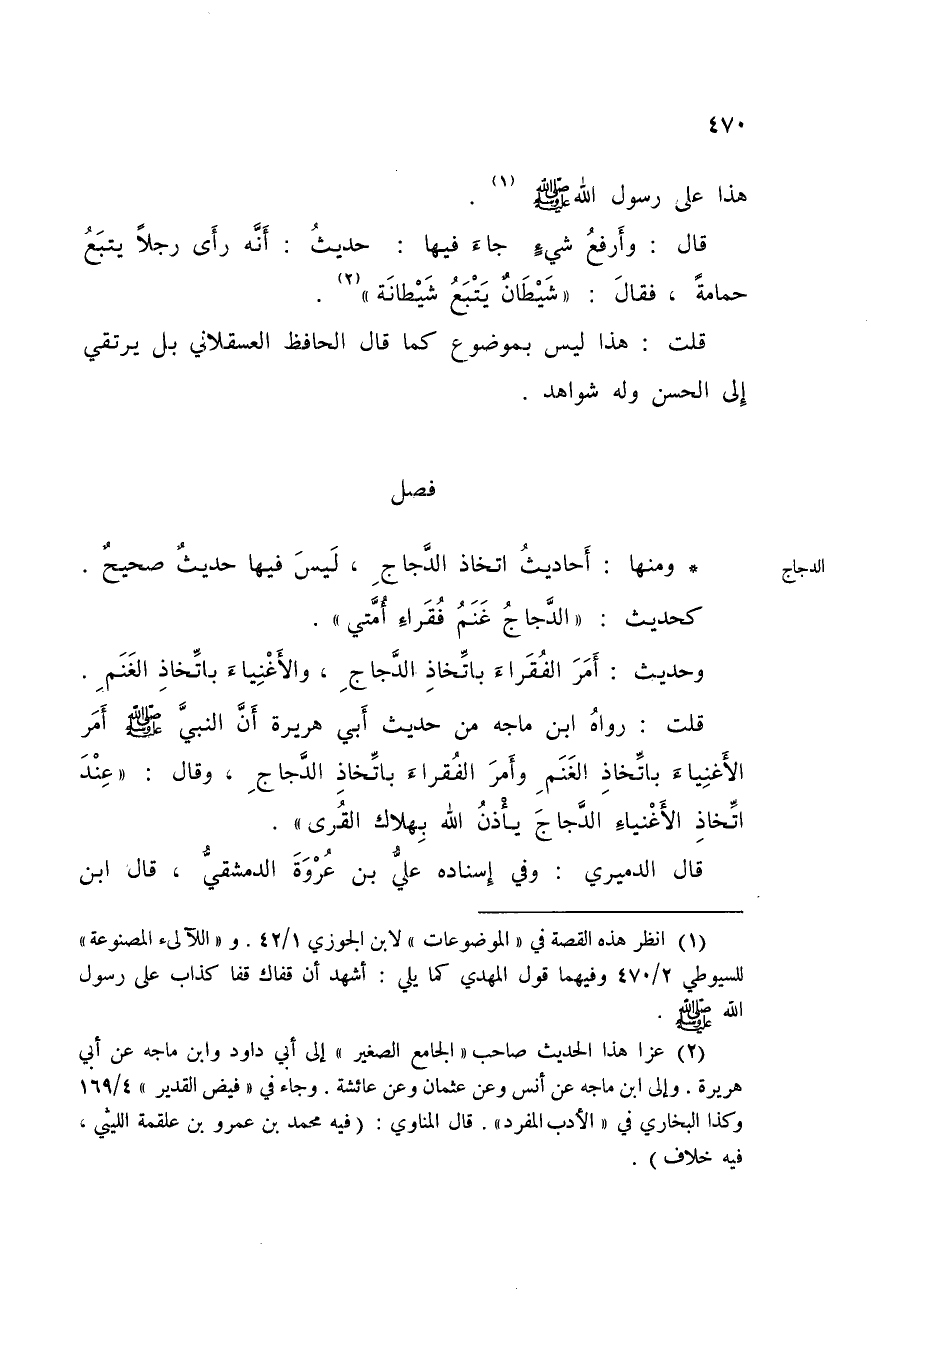 ٤٧٠
هذا على رسول الله ﷺ (١) .
قال : وأَرفعُ شيءٍ جاءَ فيها : حديثُ : أَنَّه رأَى رجلاً يتبَعُ
حمامةً ، فقالَ : « شَيْطَانٌ يَتْبَعُ شَيْطانَة »(٢) .
قلت : هذا ليس بموضوع كما قال الحافظ العسقلاني بل يرتقي
إلى الحسن وله شواهد .
فصل
* ومنها : أَحاديثُ اتخاذ الدَّجاجِ ، لَيسَ فيها حديثٌ صحيحٌ .
الدجاج
كحديث : « الدَّجاجُ غَنَمُ فُقَراءِ أُمَّتي » .
وحديث : أَمَرَ الفُقَراءَ باتِّخاذِ الدَّجاجِ ، والأَغْنِياءَ باتِّخاذِ الغَنَمِ .
قلت : رواهُ ابن ماجه من حديث أَبي هريرة أَنَّ النبيَّ ﷺ أَمَر
الأَغنِياءَ باتِّخاذِ الغَنَمِ وأَمرَ الفُقراءَ باتِّخاذِ الدَّجاجِ ، وقال : « عِنْدَ
اتِّخاذِ الأَغْنياءِ الدَّجاجَ يأْذنُ الله بِهلاك القُرى » .
قال الدميري : وفي إسناده عليُّ بن عُرْوَةَ الدمشقيُّ ، قال ابن
(١) انظر هذه القصة في « الموضوعات » لابن الجوزي ٤٢/١ . و « اللآلىء المصنوعة »
للسيوطي ٤٧٠/٢ وفيهما قول المهدي كما يلي : أشهد أن قفاك قفا كذاب على رسول
الله ﷺ .
(٢) عزا هذا الحديث صاحب « الجامع الصغير » إلى أبي داود وابن ماجه عن أبي
هريرة . وإلى ابن ماجه عن أنس وعن عثمان وعن عائشة . وجاء في « فيض القدير » ١٦٩/٤
وكذا البخاري في « الأدب المفرد » . قال المناوي : ( فيه محمد بن عمرو بن علقمة الليثي ،
فيه خلاف ) .